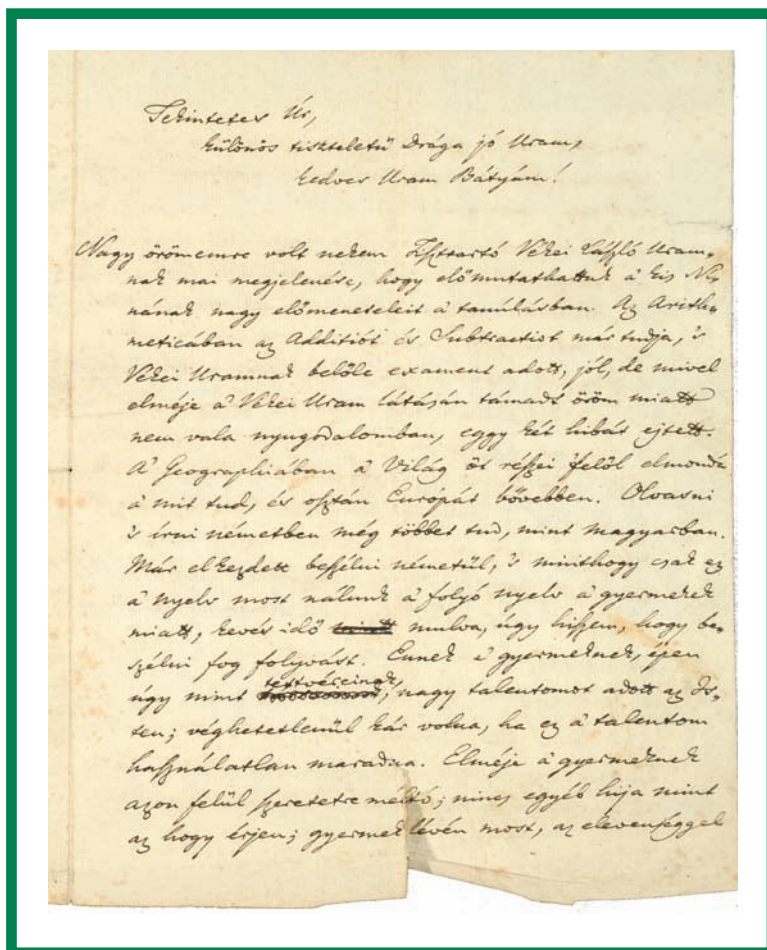 Tekintetes Úr,
különös tiszteletű Drága jó Uram,
kedves Uram Bátyám!
Nagy örömemre volt nekem Tiszttartó Vékei László Uram„
nak mai megjelenése, hogy előmutathattuk a' kis Ni„
nának nagy előmeneteleit a' tanúlásban. Az Arith„
meticában az Additiót és Subtractiot már tudja, 's
Vékei Uramnak belőle exament adott, jól, de mivel
elméje a' Vékei Uram látásán támadt öröm miatt
nem vala nyugodalomban, eggy két hibát ejtett.
A' Geographiában a' Világ öt részei felől elmondá
a' mit tud, és osztán Európát bővebben. Olvasni
's írni németben még többet tud, mint magyarban.
Már elkezdett beszélni németűl, 's minthogy csak ez
a' nyelv most nálunk a' folyó nyelv a' gyermekek
miatt, kevés idő mulva, úgy hiszem, hogy be„
szélni fog folyvást. Ennek a' gyermeknek, épen
úgy mint testvéreinek, nagy talentomot adott az Is„
ten; véghetetlenűl kár volna, ha ez a' talentom
használatlan maradna. Elméje a' gyermeknek
azon felűl szeretetre méltó; nincs egyéb híja mint
az hogy érjen; gyermek lévén most, az elevenséggel